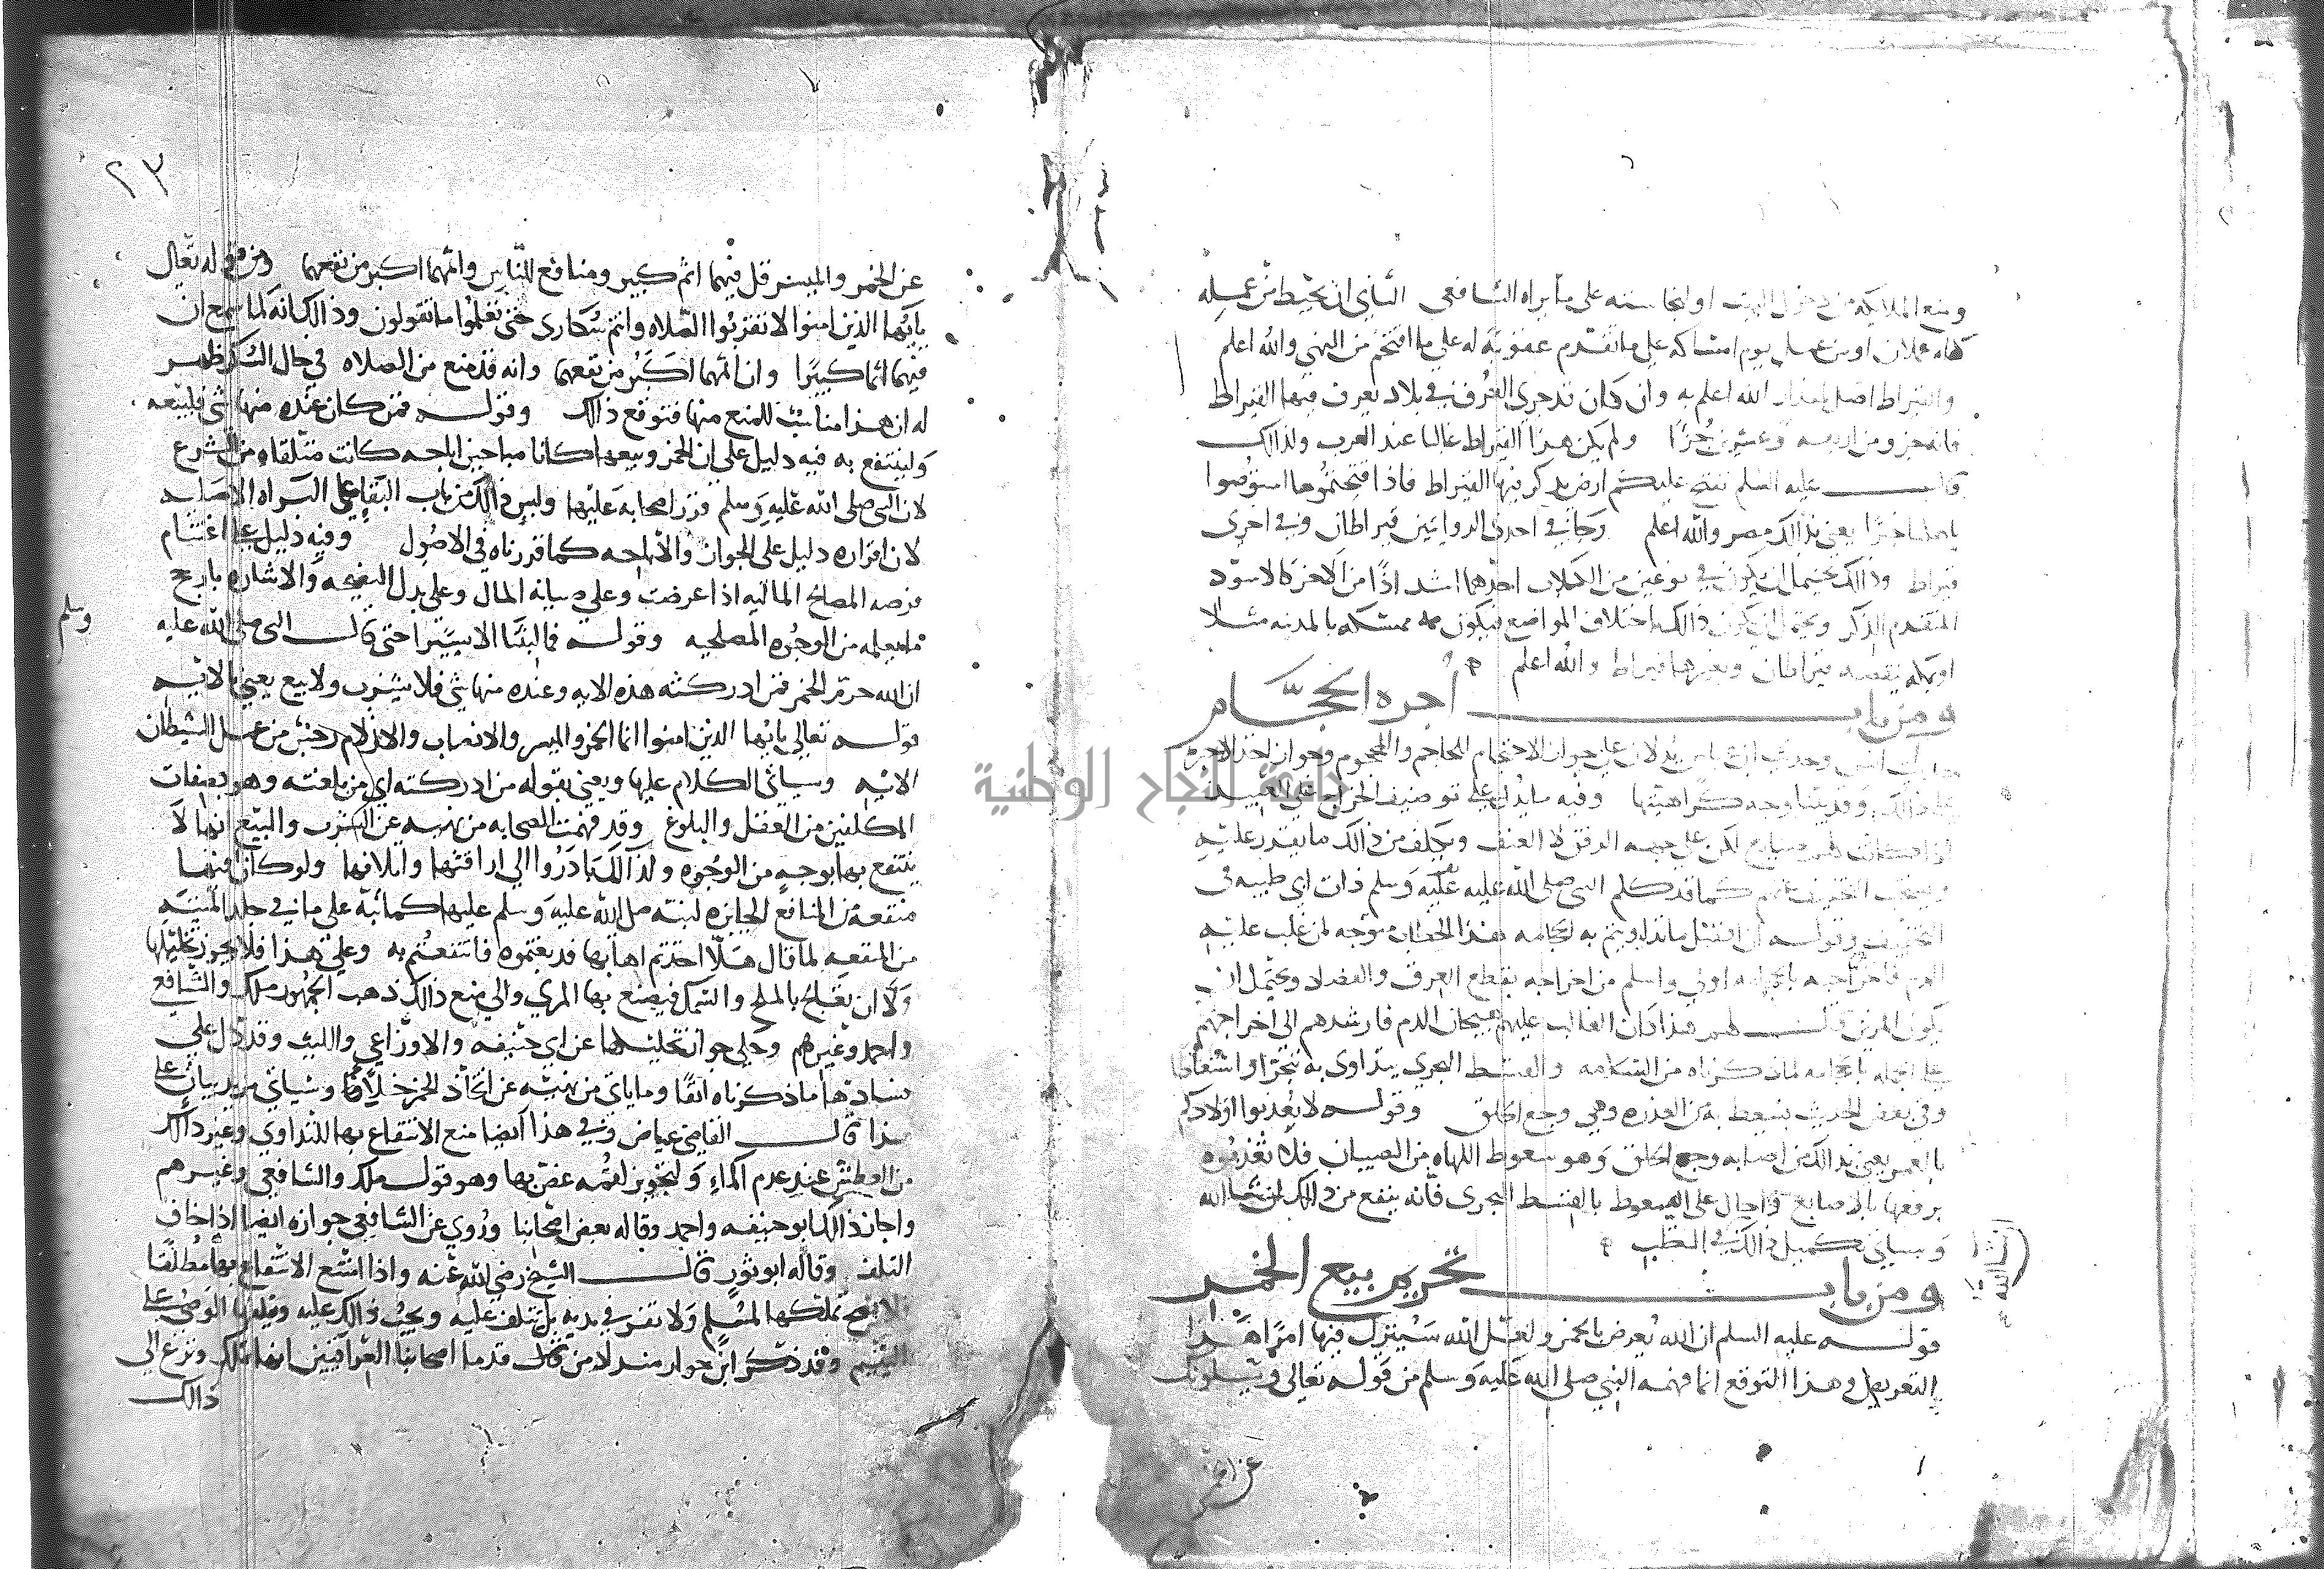 ومنع الملايكه من دخول البيت او لنجاسته على ما يراه الشافعى الثاني ان يحيط من عمله
كله عملان او من عمل يوم امساكه على ما تقدم عقوبة له على ما اقتحم من النهي والله اعلم
والقيراط اصل لمقدار الله اعلم به وان كان قد جرى العُرف في بلاد يعرف فيها القيراط
فانه جزو من اربعه وعشرين جُزءًا ولم يكن هذا القيراط غالبا عند العرب ولذالك
قال عليه السلم تفتح عليكم ارض يذكر فيها القيراط فاذا فتحتموها استوصوا
باهلها خيرًا يعني بذالك مصر والله اعلم وجا في احدى الروايتين قيراطان وفي اخرى
قيراط وذالك يحتمل ان يكون في نوعين من الكلاب احدهما اشد اذًا من الاخر كالاسود
المتقدم الذكر ويحتمل ان يكون ذالك اختلاف المواضع فيكون ممسكه بالمدينه مثلا
او بمكه ينقصه قيراطان وبغيرها قيراط والله اعلم
ومن باب اُجره الحجَّام
حديث انس وحديث ابن عباس يدلان على جواز الاحتجام للحاجم والمحجوم وجواز اخذ الاجرة
على ذالك وقد بينا وجه كراهيتها وفيه ما يدل على توظيف الخراج على العبيد
اذا كانت لهم صنايع لكن على جهه الرفق لا العنف ويكلف من ذالك ما يقدر عليه
ويستحب التخفيف عنهم كما قد كلم النبى صلى الله عليه وسلم ذات ابي طيبه في
التخفيف وقوله ان افضل ما تداويتم به الحجامه هذا الخطاب متوجه لمن غلب عليه
الدم فاخراجه بالحجامه اولى واسلم من اخراجه بقطع العرق والفصد ويحتمل ان
يكون المرض قال لهم هذا كان الغالب عليهم هيجان الدم فارشدهم الى اخراجهم
على الجمله بالحجامه لما ذكرناه من السلامه والقسط البحري يتداوى به تبخرًا واستعاطًا
وفي بعض الحديث يسعط به من العذره وهي وجع الحلق وقوله لا تعذبوا اولادكم
بالغمز يعني بذالك من اصابه وجع الحلق وهو سقوط اللهاه من الصبيان فلا تعذبوه
برفعها بالاصابع واحال على السعوط بالقسط البحرى فانه ينفع من ذالك ان شا الله
وسياتي تكميل ذالك في الطب
ومن باب تحريم بيع الخمر
قوله عليه السلم ان الله يُعرض بالخمر ولعل الله سَيُنزِل فيها امرًا هذا
التعريض وهذا التوقع انما فهمه النبى صلى الله عليه وسلم من قوله تعالى ويسلونك
عن الخمر
٢٣
عن الخمر والميسر قل فيهما اثم كبير ومنافع للناس واثمهما اكبر من نفعهما ومن قوله تعالى
يايها الذين امنوا لا تقربوا الصلاه وانتم سُكارى حتى تعلموا ما تقولون وذالك انه لما سمع ان
فيهما اثما كبيرًا وان اثمهما اكبرُ من نفعهما وانه قد منع من الصلاه في حال السُكر ظهر
له ان هذا مناسِبٌ للمنع منها فتوقع ذالك وقوله فمن كان عنده منها شى فليبعه
ولينتفع به فيه دليل على ان الخمر وبيعها كانا مباحين اباحه كانت متلقاه من الشرع
لان النبى صلى الله عليه وسلم قرر اصحابه عليها وليس ذالك من باب البقا على البراه الاصليه
لان اقراره دليل على الجواز والاباحه كما قررناه في الاصُول وفيه دليل على اغتنام
فرصه المصالح الماليه اذا عرضت وعلى صيانه المال وعلى بذل النصيحه والاشاره بارجح
ما يعلمه من الوجُوه المصلحيه وقوله فما لبثنا الا يسيرًا حتى قال النبى صلى الله عليه
وسلم
ان الله حرّم الخمر فمن ادركته هذه الايه وعنده منها شى فلا يشرب ولا يبع يعني بالايه
قوله تعالى يايها الذين امنوا انما الخمر والميسر والانصاب والازلام رجس من عمل الشيطان
الايه وسياتى الكلام عليها ويعني بقوله من ادركته اي من بلغته وهو بصفات
المكلفين من العقل والبلوغ وقد فهمت الصحابه من نهيه عن الشرب والبيع انها لا
ينتفع بها بوجهٍ من الوجُوه ولذالك بادَرُوا الى اراقتها واتلافها ولو كان فيها
منفعه من المنافع الجايزه لبينه صلى الله عليه وسلم عليها كما نبّه على ما في جلد الميته
من المنفعه لما قال هَلّا اخذتم اهابها فدبغتموه فانتفعتُم به وعلى هذا فلا يجوز تخليلها
ولا ان تعالج بالملح والسمك فيصنع بها المري والى منع ذالك ذهب الجمهور ملك والشافعى
واحمد وغيرهم وحكي جواز تخليلها عن ابي حنيفه والاوزاعي والليث وقد دل على
فساده ما ذكرناه انفًا وما ياتى من نهيه عن اتخاذ الخمر خلًا وسياتي مزيد بيان على
هذا قال القاضي عياض وفي هذا ايضا منع الانتفاع بها للتداوي وغير ذالك
من العطش عند عدم الماءِ ولتجويز لقمه غص بها وهو قول ملك والشافعي وغيرهم
واجاز ذالك ابو حنيفه واحمد وقاله بعض اصحابنا ورُوي عن الشافعي جوازه ايضا اذا خاف
التلف وقاله ابو ثورٍ قال الشيخ رضي الله عنه واذا امتنع الانتفاع بها مُطلقًا
فلا يصح تملكها لمسلم ولا تقر في يديه بل تتلف عليه ويجب ذالك عليه الوصي على
اليتيم وقد ذكر ابن خواز منداد من قدما اصحابنا العراقيين انها تملك ونزع الى
ذالك